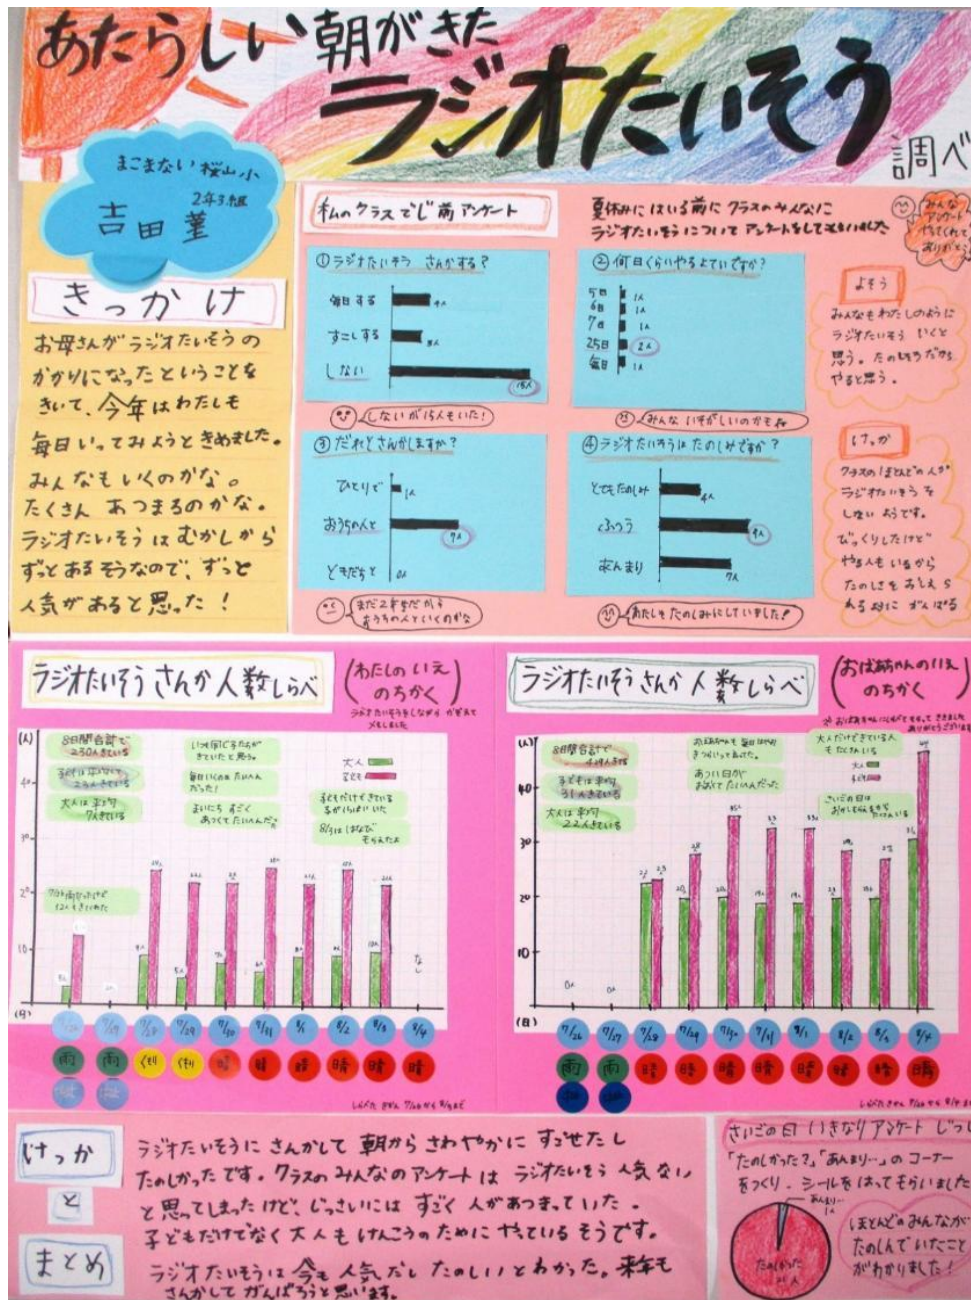 あたらしい朝がきた
ラジオたいそう
調べ
まこまない桜山小
2年3組
吉田菫
きっかけ
お母さんがラジオたいそうの
かかりになったということを
きいて、今年はわたしも
毎日いってみようときめました。
みんなもいくのかな。
たくさん あつまるのかな。
ラジオたいそうはむかしから
ずっとあるそうなので、ずっと
人気があると思った!
私のクラスでじ前アンケート
夏休みにはいる前にクラスのみんなに
ラジオたいそうについて アンケートをしてもらいました
みんな
アンケート
やってくれて
ありがとう
①ラジオたいそう さんかする?
毎日する 4人
すこしする 3人
しない 15人
しないが15人もいた!
②何日ぐらいやるよていですか?
5日 1人
6日 1人
7日 1人
25日 2人
毎日 1人
みんな いそがしいのかもね
③だれとさんかしますか?
ひとりで 1人
おうちの人と 7人
ともだちと 0人
まだ2年生だから
おうちの人といくのかな
④ラジオたいそうはたのしみですか?
とてもたのしみ 4人
ふつう 9人
あんまり 7人
わたしもたのしみにしていました!
よそう
みんなもわたしのように
ラジオたいそう いくと
思う。たのしそうだから
やると思う。
けっか
クラスのほとんどの人が
ラジオたいそうを
しないようです。
びっくりしたけど
やる人もいるから
たのしさをおしえら
れるように がんばる
ラジオたいそう さんか人数しらべ
(わたしのいえ
のちかく)
ラジオたいそうをしながら かぞえて
メモしました
(人)
8日間合計で
230人きている
子どもは平均で
23人きている
大人は平均
7人きている
いつも同じ子たちが
きていたと思う。
毎日いくのは たいへん
だった!
まいにち すごく
あつくてたいへんだった
大人
子ども
子どもだけできている
子がいっぱいいた
8/3ははなび
もらえたよ
40
30
20
10
なし
(日)
7/26 7/27 7/28 7/29 7/30 7/31 8/1 8/2 8/3 8/4
雨 雨 くもり くもり 晴 晴 晴 晴 晴 晴
しらべた きかん 7/26から8/3まで
ラジオたいそう さんか人数しらべ
(おばあちゃんのいえ
のちかく)
(人)
8日間合計で
子どもは平均
31人きている
大人は平均
22人きている
あつい日が
おおくて たいへんだった
大人だけできている人
もたくさんいる
大人
子ども
40
30
20
10
0人 0人
(日)
7/26 7/27 7/28 7/29 7/30 7/31 8/1 8/2 8/3 8/4
雨 雨 晴 晴 晴 晴 晴 晴 晴 晴
しらべたきかん 7/26から8/4まで
けっか
と
まとめ
ラジオたいそうに さんかして 朝から さわやかに すごせたし
たのしかったです。クラスのみんなのアンケートは ラジオたいそう 人気ない
と思ってしまったけど、じっさいには すごく人があつまっていた。
子どもだけでなく 大人もけんこうのために やっているそうです。
ラジオたいそうは 今も 人気だし たのしいとわかった。来年も
さんかして がんばろうと思います。
さいごの日 いきなりアンケート じっし
「たのしかった?」「あんまり…」のコーナー
をつくり、シールをはってもらいました
あんまり…
1人
たのしかった
ほとんどのみんなが
たのしんでいたこと
がわかりました!